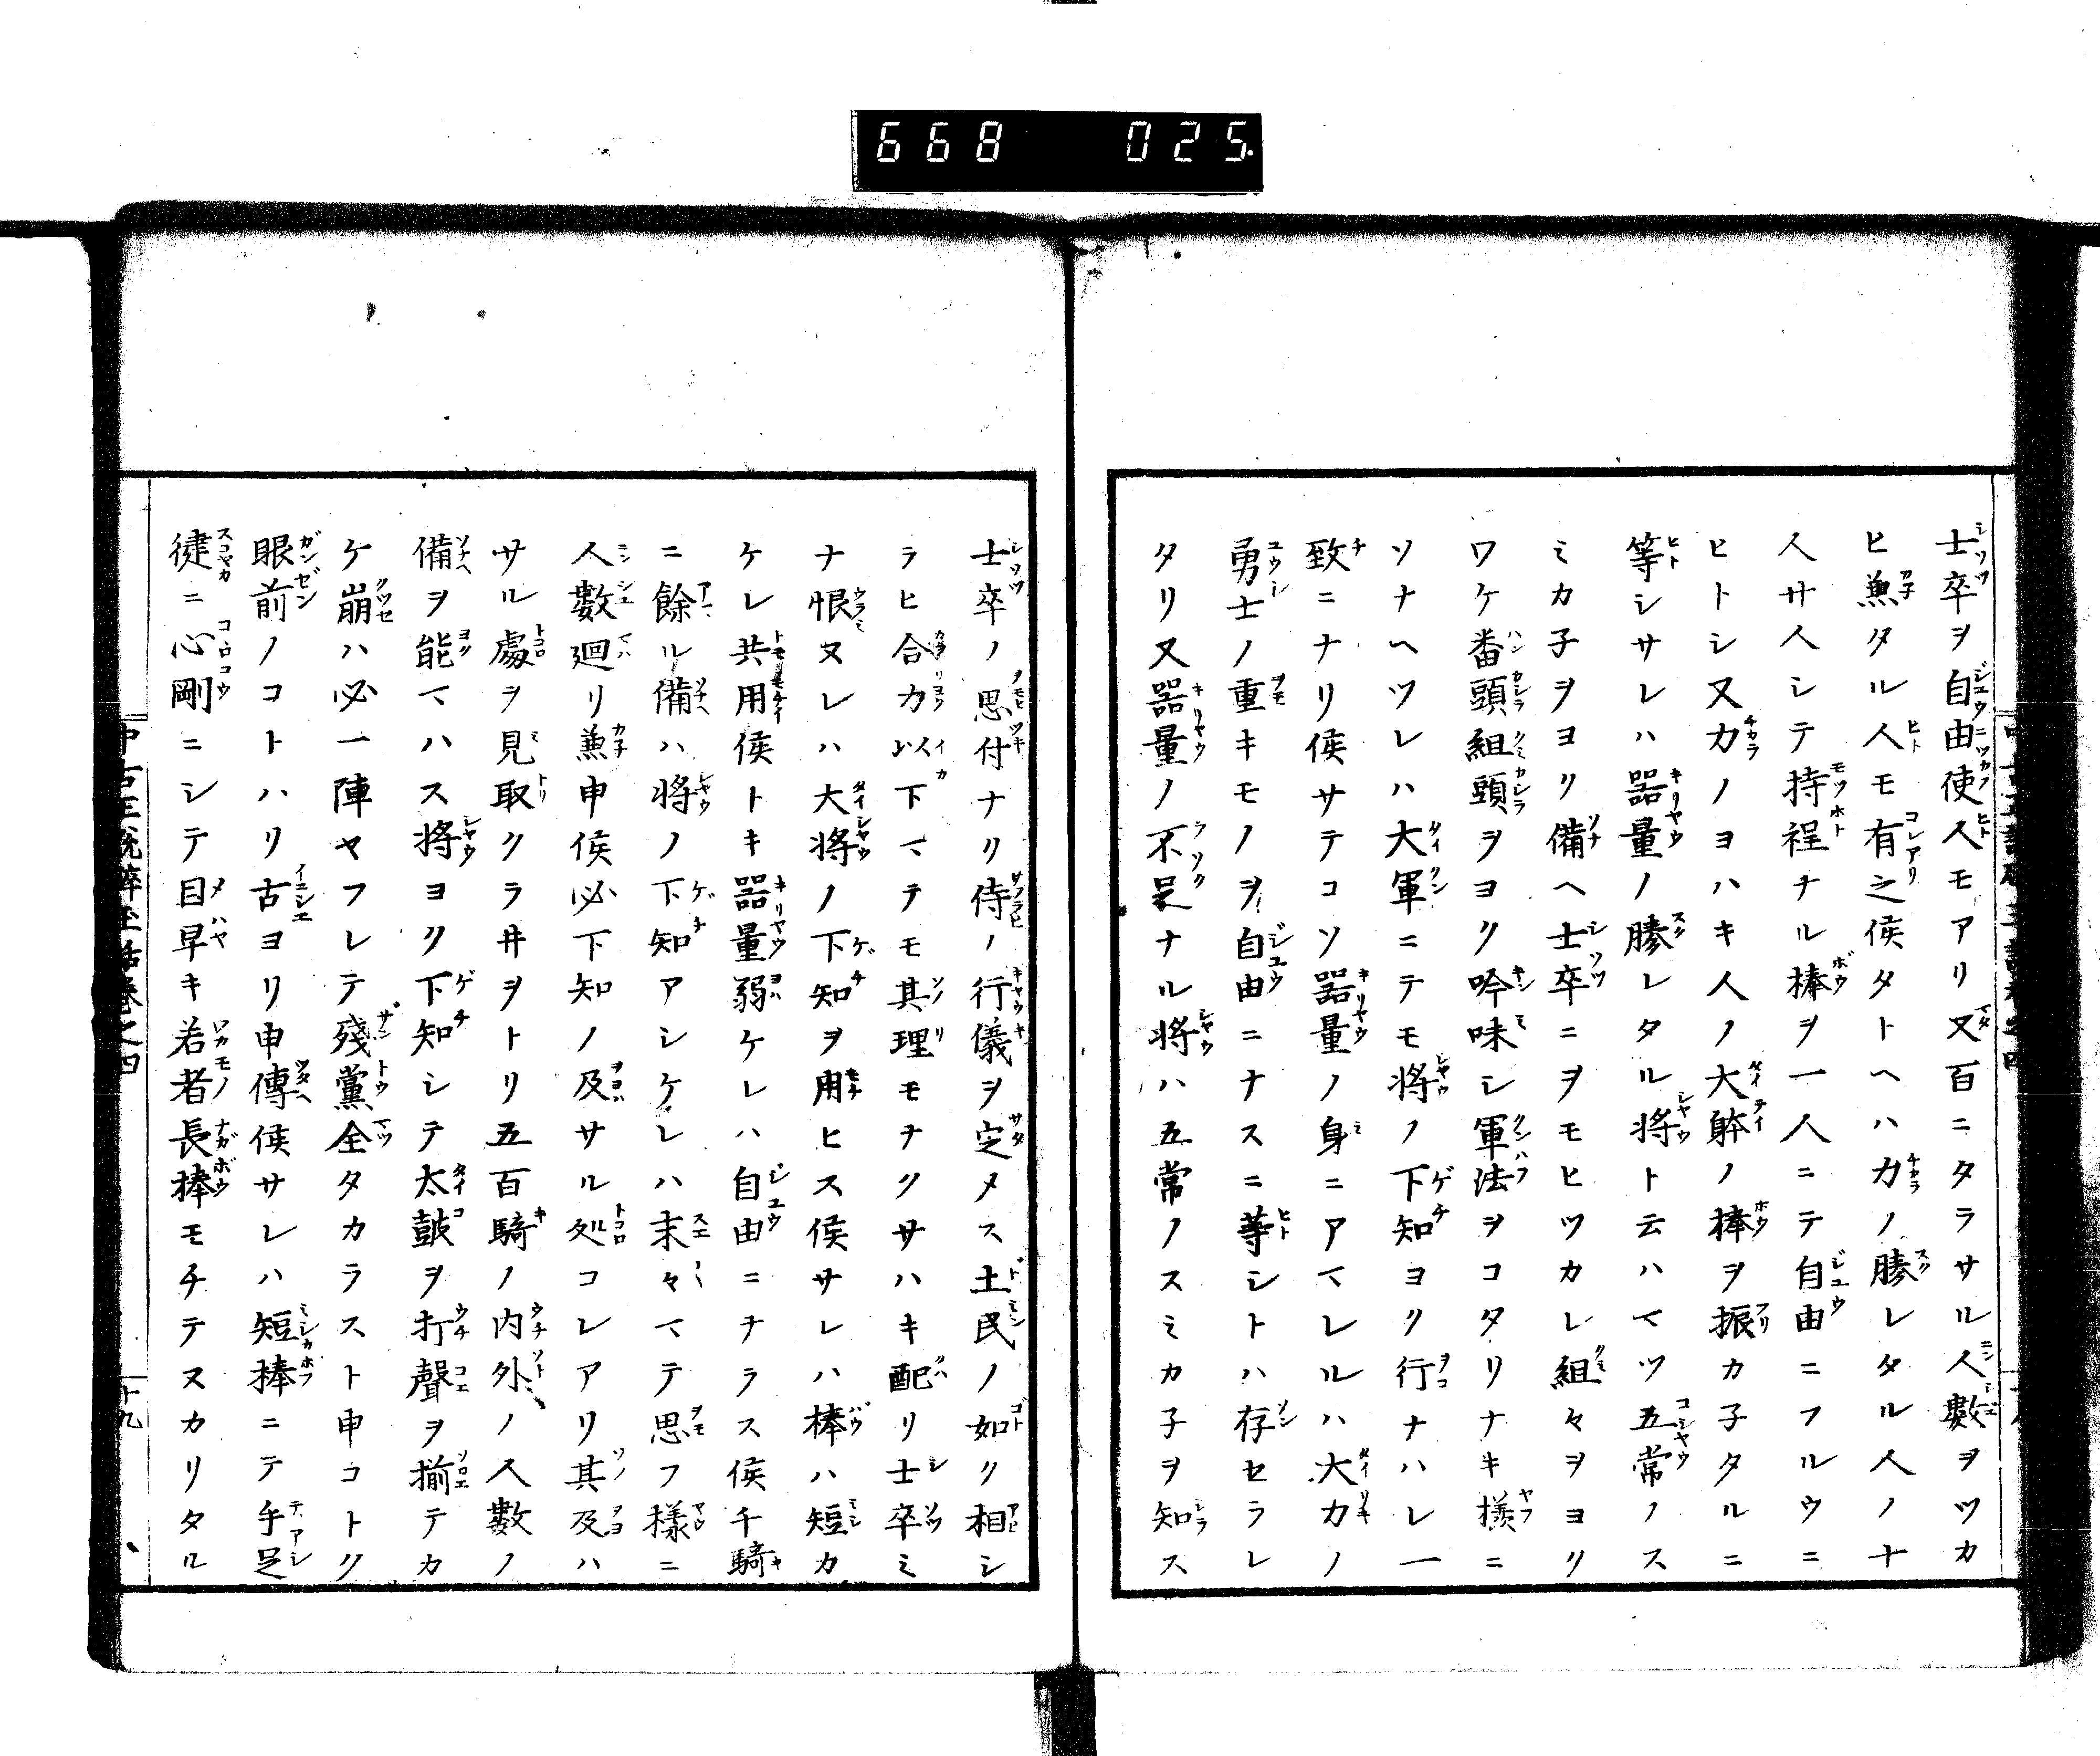 668 025
士卒ヲ自由使人モアリ又百ニタラサル人數ヲツカ
ヒ兼タル人モ有之侯タトヘハ力ノ勝レタル人ノ十
人廿人シテ持程ナル棒ヲ一人ニテ自由ニフルウニ
ヒトシ又力ノヨハキ人ノ大躰ノ棒ヲ振カ子タルニ
等シサレハ器量ノ勝レタル将ト云ハマツ五常ノス
ミカ子ヲヨリ備ヘ士卒ニヲモヒツカレ組々ヲヨリ
ワケ番頭組頭ヲヨク吟味シ軍法ヲコタリナキ様ニ
ソナヘツレハ大軍ニテモ将ノ下知ヨク行ナハレ一
致ニナリ侯サテコソ器量ノ身ニアマレルハ大力ノ
勇士ノ重キモノヲ自由ニナスニ等シトハ存セラレ
タリ又器量ノ不足ナル将ハ五常ノスミカ子ヲ知ス
士卒ノ思付ナリ侍ノ行儀ヲ定メス土民ノ如ク相シ
ラヒ合力以下マテモ其理モナクサハキ配リ士卒ミ
ナ恨ヌレハ大将ノ下知ヲ用ヒス侯サレハ棒ハ短カ
ケレ共用侯トキ器量弱ケレハ自由ニナラス侯千騎
ニ餘ル備ハ将ノ下知アシケレハ末々マテ思フ様ニ
人數廻リ兼申侯必下知ノ及サル処コレアリ其及ハ
サル處ヲ見取クラ井ヲトリ五百騎ノ内外ノ人數ノ
備ヲ能マハス将ヨク下知シテ太鼓ヲ打聲ヲ揃テカ
ケ崩ハ必一陣ヤフレテ殘黨全タカラスト申コトク
眼前ノコトハリ古ヨリ申傳侯サレハ短棒ニテ手足
徤ニ心剛ニシテ目早キ若者長棒モチテスカリタル
卷之四
十九